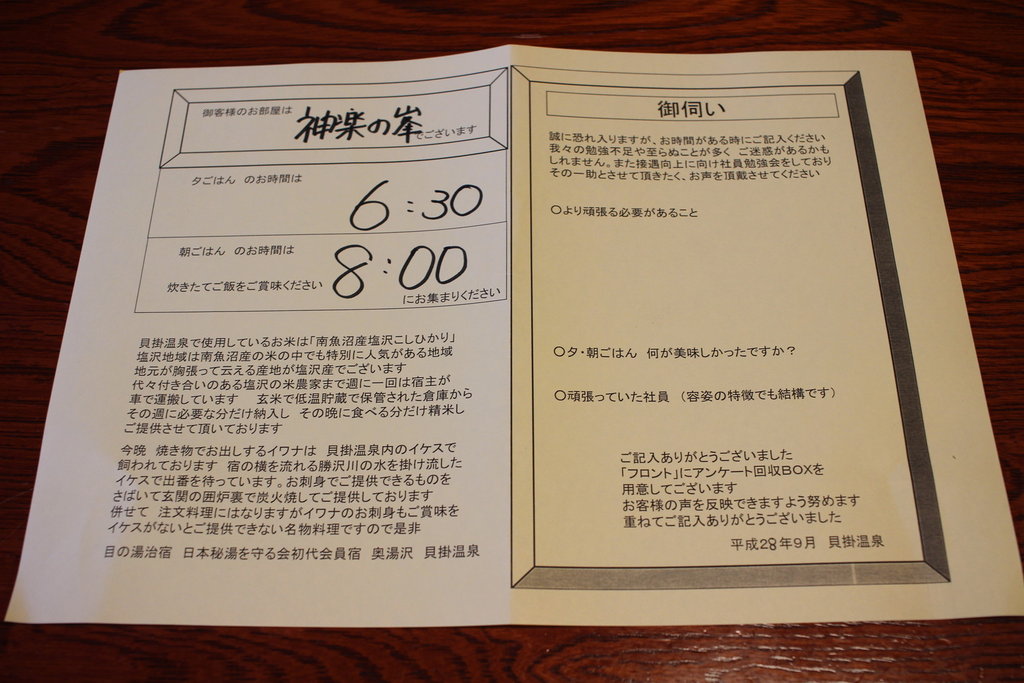 御客様のお部屋は
神楽の峯でございます
夕ごはん のお時間は
6:30
朝ごはん のお時間は
8:00
炊きたてご飯をご賞味ください
にお集まりください
貝掛温泉で使用しているお米は「南魚沼産塩沢こしひかり」
塩沢地域は南魚沼産の米の中でも特別に人気がある地域
地元が胸張って云える産地が塩沢産でございます
代々付き合いのある塩沢の米農家まで週に一回は宿主が
車で運搬しています 玄米で低温貯蔵で保管された倉庫から
その週に必要な分だけ納入し その晩に食べる分だけ精米し
ご提供させて頂いております
今晩 焼き物でお出しするイワナは 貝掛温泉内のイケスで
飼われております 宿の横を流れる勝沢川の水を掛け流した
イケスで出番を待っています。お刺身でご提供できるものを
さばいて玄関の囲炉裏で炭火焼してご提供しております
併せて 注文料理にはなりますがイワナのお刺身もご賞味を
イケスがないとご提供できない名物料理ですので是非
目の湯治宿 日本秘湯を守る会初代会員宿 奥湯沢 貝掛温泉
御伺い
誠に恐れ入りますが、お時間がある時にご記入ください
我々の勉強不足や至らぬことが多く ご迷惑があるかも
しれません。また接遇向上に向け社員勉強会をしており
その一助とさせて頂きたく、お声を頂戴させてください
○より頑張る必要があること
○夕・朝ごはん 何が美味しかったですか？
○頑張っていた社員 （容姿の特徴でも結構です）
ご記入ありがとうございました
「フロント」にアンケート回収BOXを
用意してございます
お客様の声を反映できますよう努めます
重ねてご記入ありがとうございました
平成28年9月 貝掛温泉